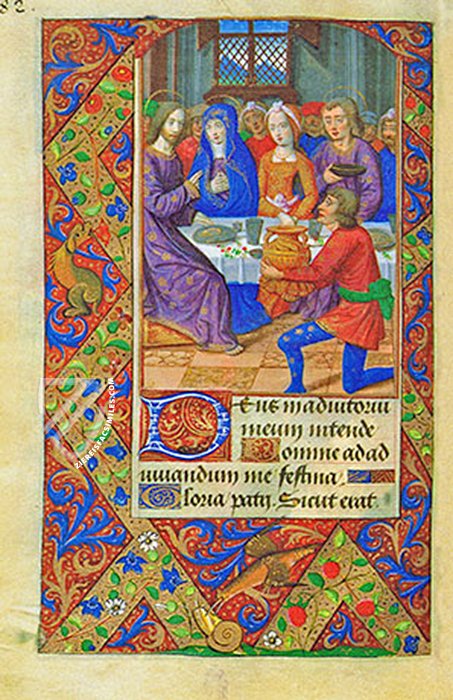 82.
Deus in adiutoriu
meum intende
Domine ad ad
iuuandum me festina
Gloria patri. Sicut erat.
ZIEREISFACSIMILES.COM